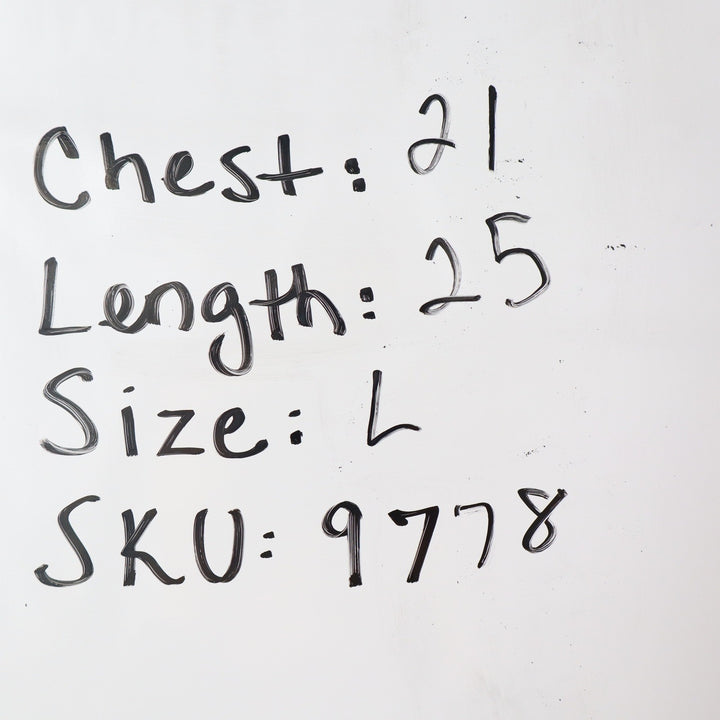 Chest: 21
Length: 25
Size: L
SKU: 9778